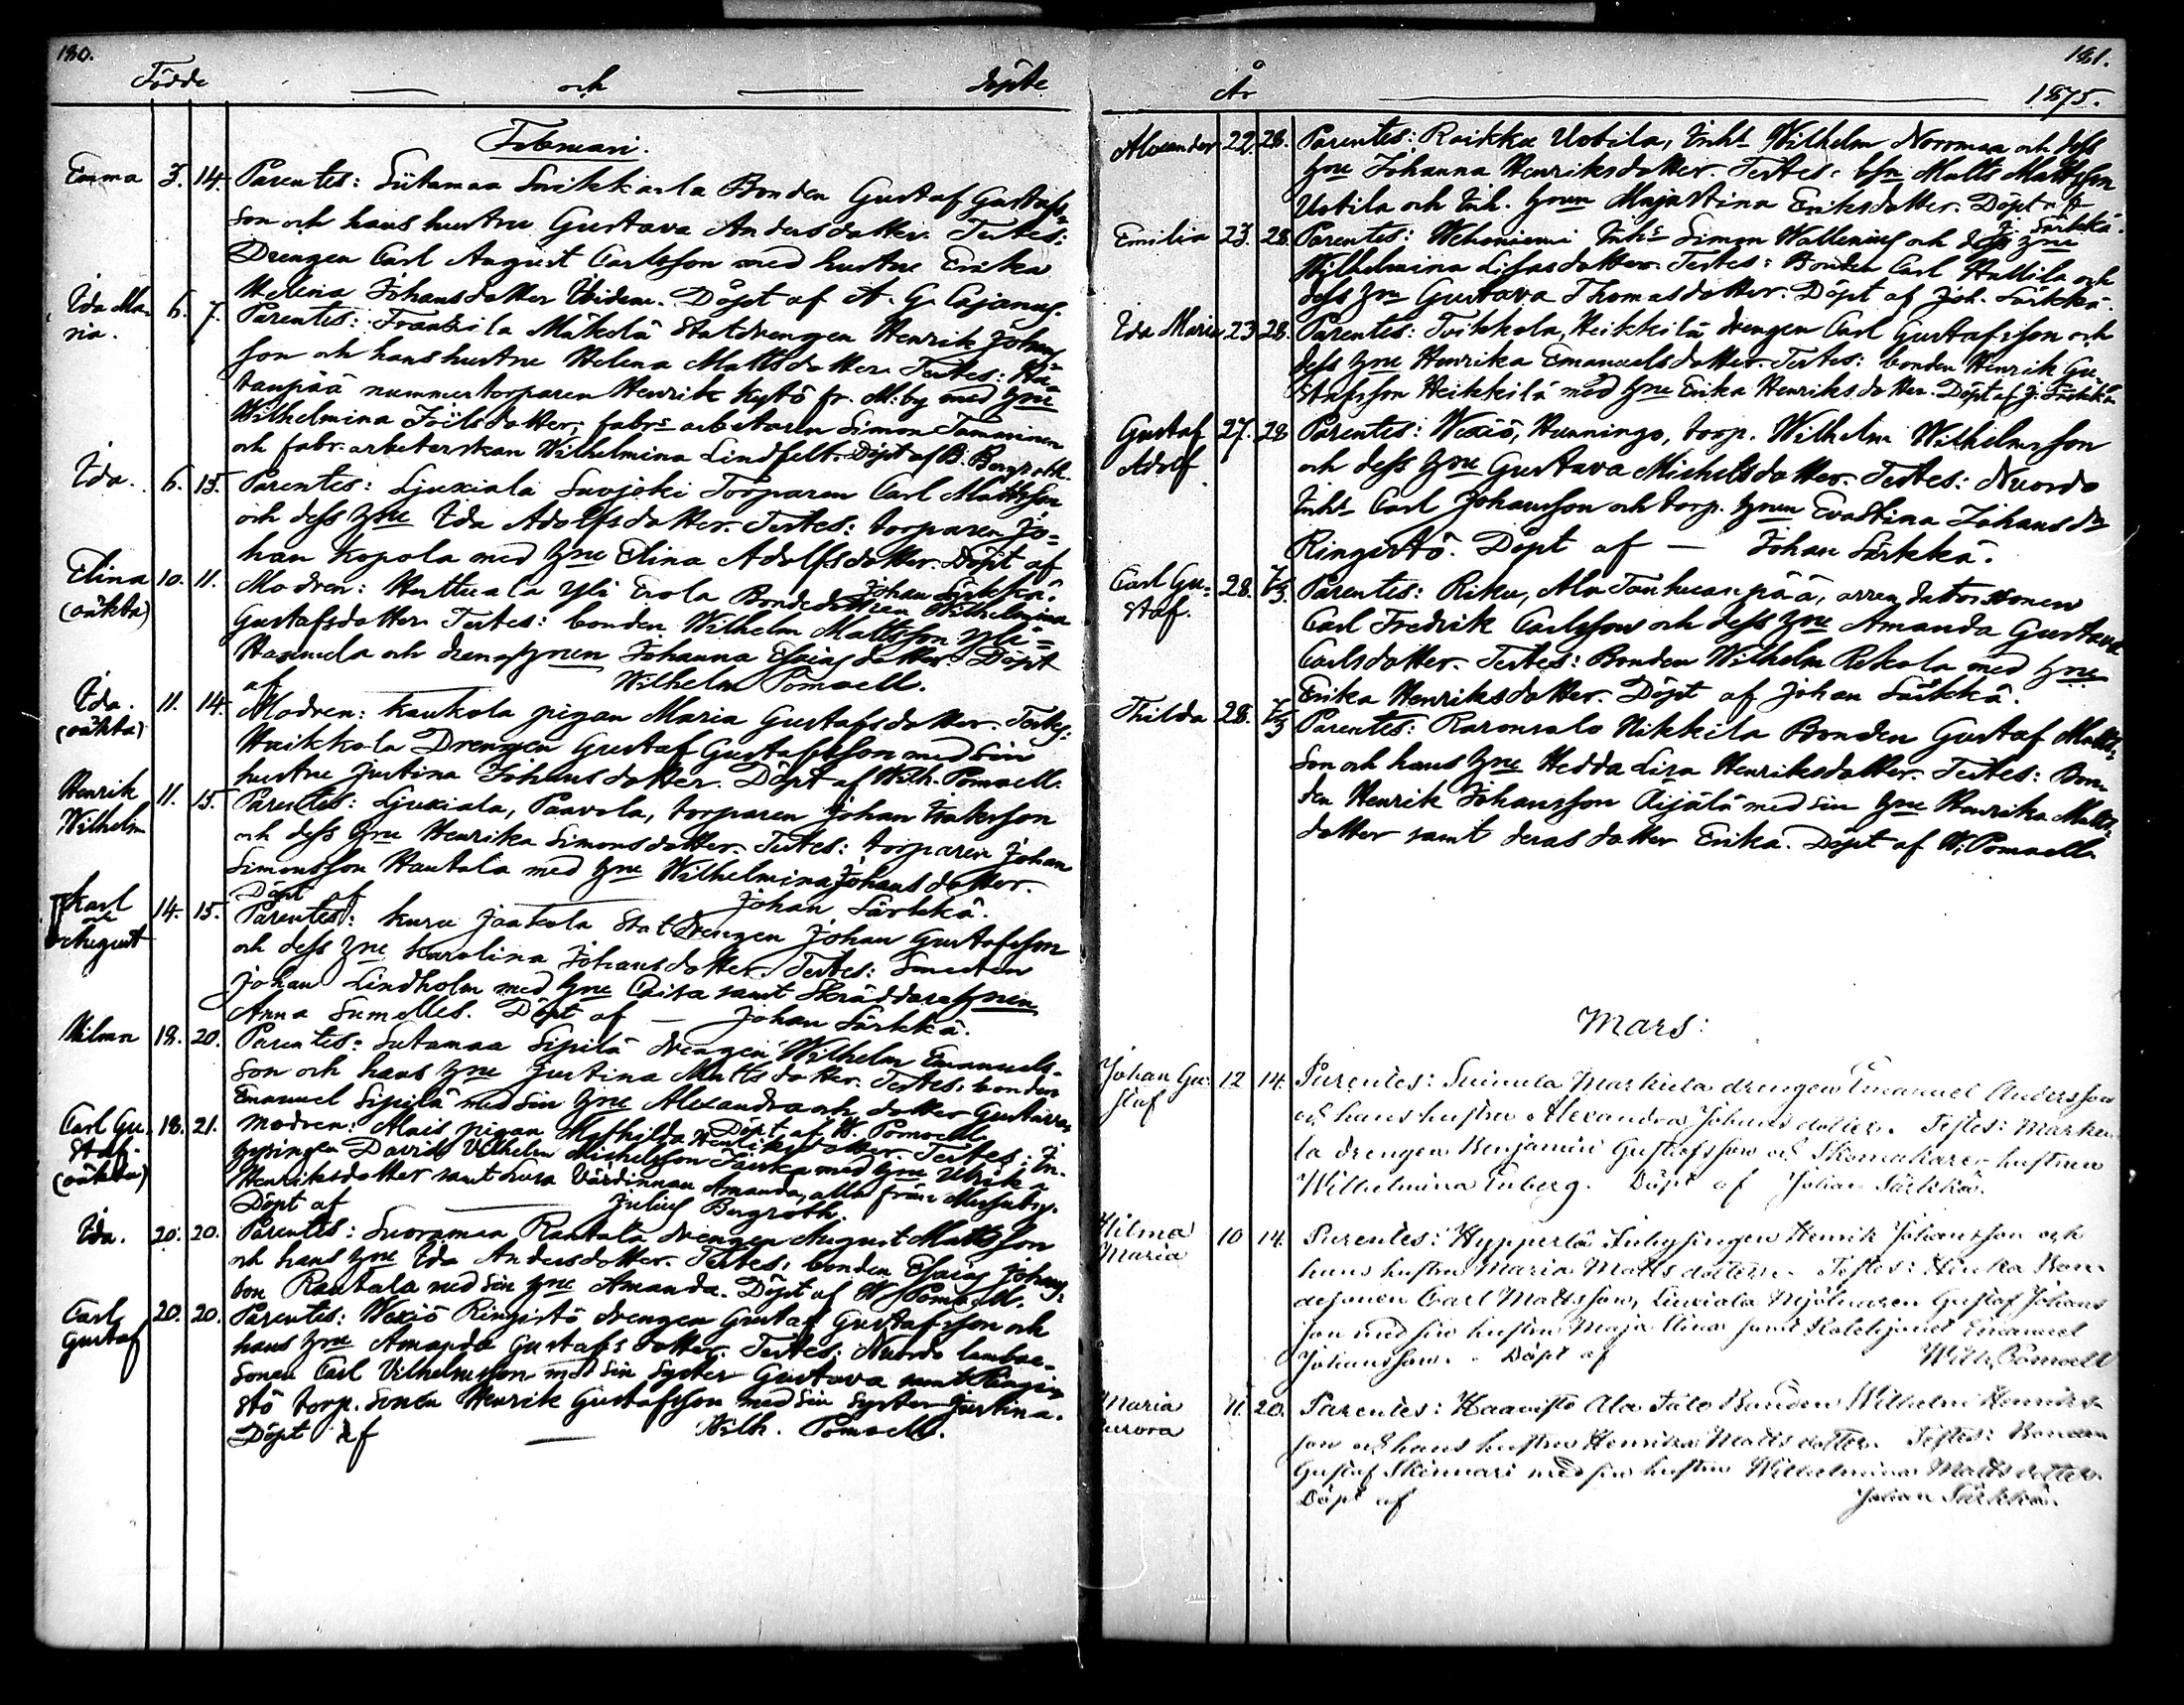 180.
Födde — och — döpte
Februari.
Emma 3. 14. Parentes: Sütamaa Bonden Gustaf Gustafs-
son och hans hustru Gustava Andersdotter. Testes:
Drengen Carl August Carlsson med hustru Erika
Helena Johansdotter Ibidem. Döpt af A. G. Cajanus.
Ida Ma- 6. 7. Parentes: Franssila Mäkelä Statdrengen Henrik Johans-
ria. son och hans hustru Helena Mattsdotter. Testes: Ha-
tanpää nummertorparen Henrik Kytö fr. M:by med hne
Wilhelmina Joilsdotter; fabrs arbetaren Simon Tamminen
och fabr. arbeterskan Wilhelmina Lindfelt. Döpt af B. Bergroth.
Ida. 6. 15. Parentes: Ljuxiala Suojoki Torparen Carl Mattsson
och dess hne Ida Adolfsdotter. Testes: torparen Jo-
han Kopola med hne Elina Adolfsdotter. Döpt af
Johan Särkkä.
Elina 10. 11. Modren: Herttuala Yli Erola Bondedottren Wilhelmina
(oäkta) Gustafsdotter. Testes: bonden Wilhelm Mattsson Yli-
och drengshnen Johanna Esaiasdotter. Döpt
af — Wilhelm Pomoell.
Ida. 11. 14. Modren: Kaukola pigan Maria Gustafsdotter. Testes:
(oäkta) Huikkola Drengen Gustaf Gustafsson med sin
hustru Justina Johansdotter. Döpt af Wilh. Pomoell.
Henrik 11. 15. Parentes: Ljuxiala, Paavola, torparen Johan Isaksson
Wilhelm och dess hne Henrika Simonsdotter. Testes: torparen Johan
Simonsson Hautala med hne Wilhelmina Johansdotter.
Döpt af — Johan Särkkä.
Karl 14. 15. Parentes: Kuru Jaakola Statdrengen Johan Gustafsson
August och dess hne Karolina Johansdotter. Testes: Smeden
Johan Lindholm med hne Caisa samt Skräddarehnen
Anna Sumelles. Döpt af — Johan Särkkä.
Hilma 18. 20. Parentes: Sutamaa Sipilä drengen Wilhelm Emanuels-
son och hans hne Justina Mattsdotter. Testes: bonden
Emanuel Sipilä med sin hne Alexandra och dotter Gustava.
Döpt af W. Pomoell.
Carl Gu- 18. 21. Modren: Alais pigan Mathilda Henriksdotter. Testes: In-
staf. hysingen David Vilhelm Michelsson med hne Ulrika
(oäkta) Henriksdotter samt Värdinnan Amanda, alla från Messuby.
Döpt af — Julius Bergroth.
Ida. 20. 20. Parentes: Suoramaa Rautala drengen August Mattsson
och hans hne Ida Andersdotter. Testes: bonden Esaias Johans-
son Rautala med sin hne Amanda. Döpt af W. Pomoell.
Carl 20. 20. Parentes: Wexiö Ringistö drengen Gustaf Gustafsson och
Gustaf hans hne Amanda Gustafsdotter. Testes: Nuordo
sonen Carl Vilhelmsson med sin syster Gustava samt Ringi-
stö torp. sonen Henrik Gustafsson med sin syster Justina.
Döpt af — Wilh. Pomoell.
181.
År — 1875.
Alexander 22. 28. Parentes: Raikku Uotila, Inhs Wilhelm Norrmaa och dess
hne Johanna Henriksdotter. Testes: bsn Matts Mattsson
Uotila och Inh. hnen Majastina Eriksdotter. Döpt af
J. Särkkä.
Emilia 23. 28. Parentes: Wehoniemi Inhs Simon Wallenius och dess hne
Wilhelmina Lisasdotter. Testes: Bonden Carl Hattila och
dess hne Gustava Thomasdotter. Döpt af Joh. Särkkä.
Ida Maria 23. 28. Parentes: Toikkola, Heikkilä drengen Carl Gustafsson och
dess hne Henrika Emanuelsdotter. Testes: bonden Henrik Gu-
stafsson Heikkilä med hne Erika Henriksdotter. Döpt af J. Särkkä
Gustaf 27. 28 Parentes: Wexiö, Hunningo, torp. Wilhelm Wilhelmsson
Adolf och dess hne Gustava Michelsdotter. Testes: Nuordo
Inhs Carl Johansson och torp. hnen Evastina Johansdr
Ringistö. Döpt af — Johan Särkkä.
Carl Gu- 28. 7/3. Parentes: Riku, Ala Tanhuanpää, arrendatorssonen
staf. Carl Fredrik Carlsson och dess hne Amanda Gustava
Carlsdotter. Testes: Bonden Wilhelm Rekola med hne
Erika Henriksdotter. Döpt af Johan Särkkä.
Thilda 28. 7/3 Parentes: Raronsalo Nikkilä Bonden Gustaf Matts-
son och hans hne Hedda Lisa Henriksdotter. Testes: Bon-
den Henrik Johansson Äijälä med sin hne Henrika Matts-
dotter samt deras dotter Erika. Döpt af W. Pomoell.
Mars:
Johan Gu- 12 14. Parentes: Suinula Markkula drengen Emanuel Andersson
staf och hans hustru Alexandra Johansdotter. Testes: Markku-
la drengen Benjamin Gustafsson och Skomakare hustrun
Wilhelmina Enberg. Döpt af Johan Särkkä.
Hilma 10 14. Parentes: Hypperlä Inhysingen Henrik Johansson och
Maria hans hustru Maria Mattsdotter. Testes: Bon-
desonen Carl Mattsson, Liuxiala Mjölnaren Gustaf Johans
son med sin hustru Maja Stina samt Emanuel
Johansson. Döpt af Wilh. Pomoell
Maria 11. 20. Parentes: Haavisto Ala Talo Bonden Wilhelm Henriks-
Aurora son och hans hustru Henrika Mattsdotter. Testes: Bonden
Gustaf Skinnari med sin hustru Wilhelmina Mattsdotter.
Döpt af Johan Särkkä.